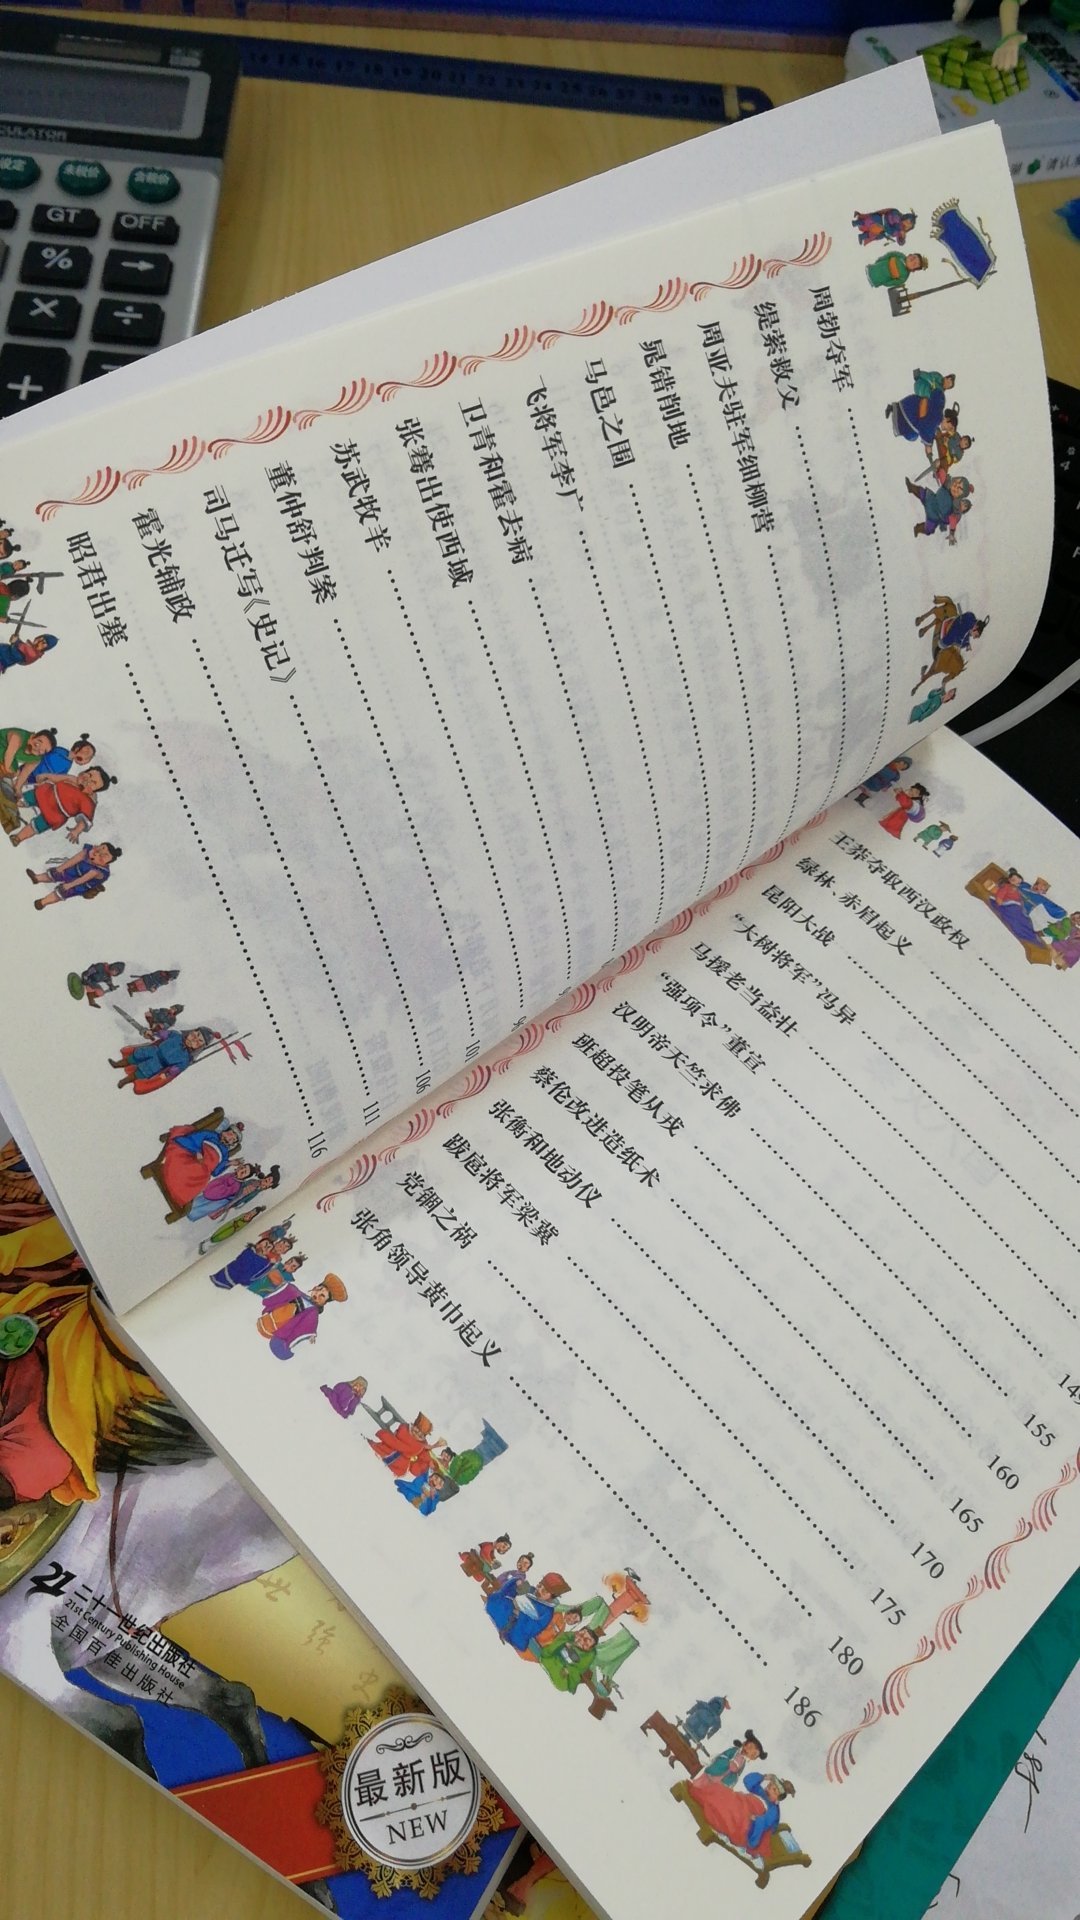 CULATOR
设定
未税价
含税价
GT
OFF
%
→
×
÷
+
14 15 16 17 18 19 20 21 22 23 24 25 26 27 28 29 30
周勃夺军
缇萦救父
周亚夫驻军细柳营
晁错削地
马邑之围
飞将军李广
卫青和霍去病
张骞出使西域
苏武牧羊
董仲舒判案 101
司马迁写《史记》 106
霍光辅政 111
昭君出塞 116
王莽夺取西汉政权
绿林、赤眉起义
昆阳大战
“大树将军”冯异
马援老当益壮
“强项令”董宣
汉明帝天竺求佛
班超投笔从戎 155
蔡伦改进造纸术 160
张衡和地动仪 165
跋扈将军梁冀 170
党锢之祸 175
张角领导黄巾起义 180
186
21 二十一世纪出版社
21st Century Publishing House
全国百佳出版社
最新版
NEW